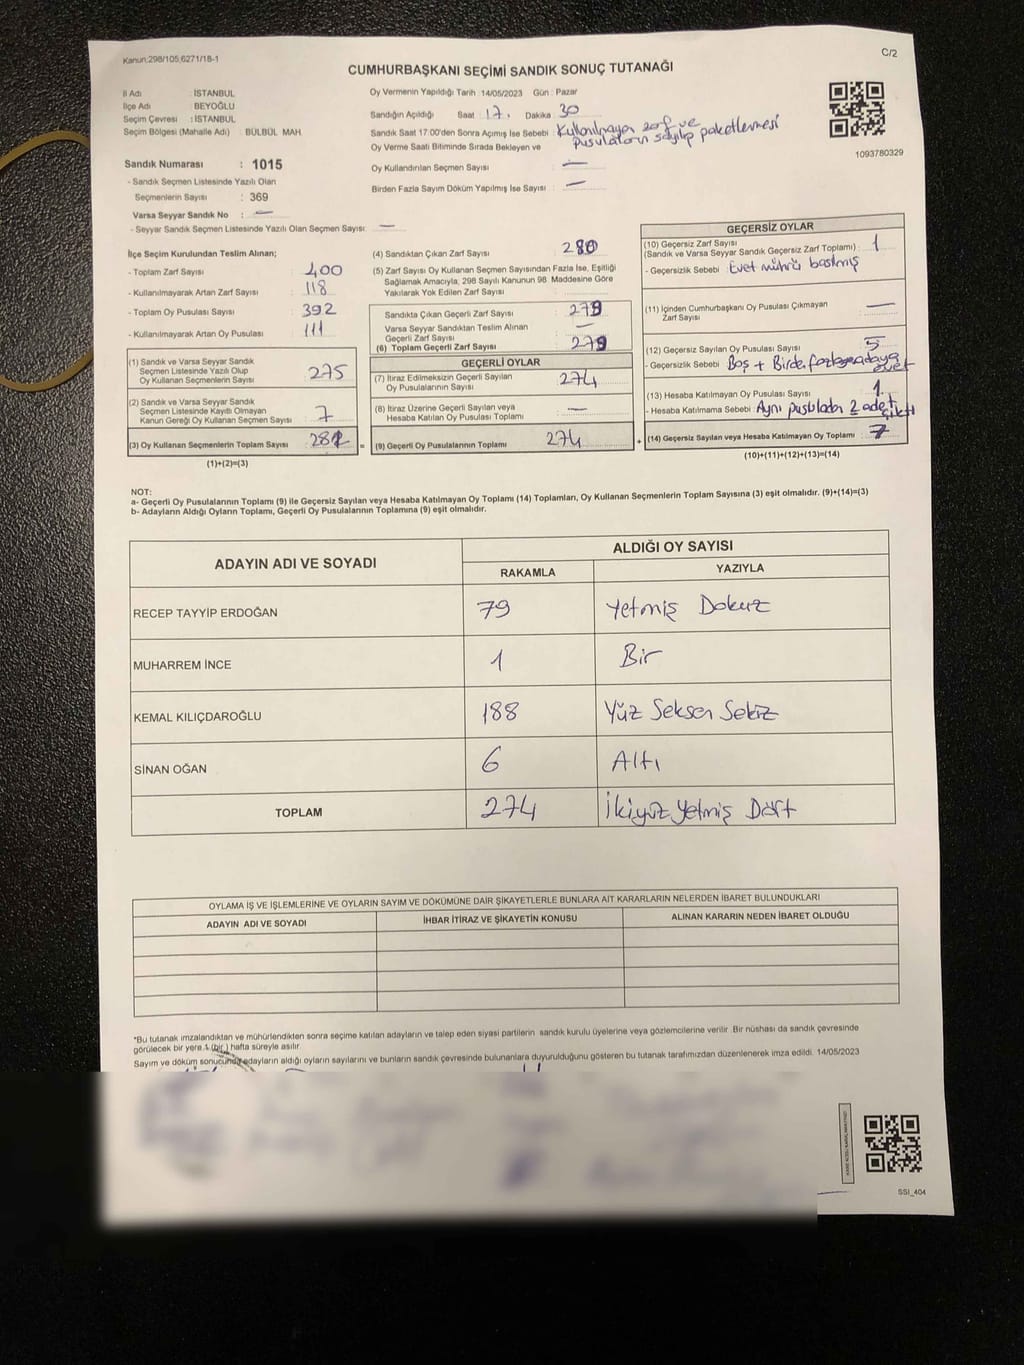 Kanun:298/105,6271/18-1
C/2
CUMHURBAŞKANI SEÇİMİ SANDIK SONUÇ TUTANAĞI
İl Adı : İSTANBUL
İlçe Adı : BEYOĞLU
Seçim Çevresi : İSTANBUL
Seçim Bölgesi (Mahalle Adı) : BÜLBÜL MAH.
Sandık Numarası : 1015
- Sandık Seçmen Listesinde Yazılı Olan
Seçmenlerin Sayısı : 369
Varsa Seyyar Sandık No : —
- Seyyar Sandık Seçmen Listesinde Yazılı Olan Seçmen Sayısı: —
Oy Vermenin Yapıldığı Tarih :14/05/2023 Gün : Pazar
Sandığın Açıldığı Saat 17. Dakika 30
Sandık Saat 17:00'den Sonra Açmış İse Sebebi : Kullanılmayan zarf ve
pusulaların sayılıp paketlenmesi
Oy Verme Saati Bitiminde Sırada Bekleyen ve
Oy Kullandırılan Seçmen Sayısı : —
Birden Fazla Sayım Döküm Yapılmış İse Sayısı : —
1093780329
İlçe Seçim Kurulundan Teslim Alınan;
- Toplam Zarf Sayısı : 400
- Kullanılmayarak Artan Zarf Sayısı : 118
- Toplam Oy Pusulası Sayısı : 392
- Kullanılmayarak Artan Oy Pusulası : 111
(1) Sandık ve Varsa Seyyar Sandık
Seçmen Listesinde Yazılı Olup
Oy Kullanan Seçmenlerin Sayısı 275
(2) Sandık ve Varsa Seyyar Sandık
Seçmen Listesinde Kayıtlı Olmayan
Kanun Gereği Oy Kullanan Seçmen Sayısı : 7
(3) Oy Kullanan Seçmenlerin Toplam Sayısı
(1)+(2)=(3)
(4) Sandıktan Çıkan Zarf Sayısı : 280
(5) Zarf Sayısı Oy Kullanan Seçmen Sayısından Fazla İse, Eşitliği
Sağlamak Amacıyla; 298 Sayılı Kanunun 98. Maddesine Göre
Yakılarak Yok Edilen Zarf Sayısı :
Sandıkta Çıkan Geçerli Zarf Sayısı : 279
Varsa Seyyar Sandıktan Teslim Alınan
Geçerli Zarf Sayısı : —
(6) Toplam Geçerli Zarf Sayısı : 279
GEÇERLİ OYLAR
(7) İtiraz Edilmeksizin Geçerli Sayılan
Oy Pusulalarının Sayısı : 274
(8) İtiraz Üzerine Geçerli Sayılan veya
Hesaba Katılan Oy Pusulası Toplamı : —
(9) Geçerli Oy Pusulalarının Toplamı : 274
GEÇERSİZ OYLAR
(10) Geçersiz Zarf Sayısı
(Sandık ve Varsa Seyyar Sandık Geçersiz Zarf Toplamı) : 1
- Geçersizlik Sebebi : Evet mührü basılmış
(11) İçinden Cumhurbaşkanı Oy Pusulası Çıkmayan
Zarf Sayısı : —
(12) Geçersiz Sayılan Oy Pusulası Sayısı : 5
- Geçersizlik Sebebi : Boş + Birden fazla adaya
evet
(13) Hesaba Katılmayan Oy Pusulası Sayısı : 1
- Hesaba Katılmama Sebebi : Aynı pusuladan 2 adet
çıktı
+ (14) Geçersiz Sayılan veya Hesaba Katılmayan Oy Toplamı : 7
(10)+(11)+(12)+(13)=(14)
NOT:
a- Geçerli Oy Pusulalarının Toplamı (9) ile Geçersiz Sayılan veya Hesaba Katılmayan Oy Toplamı (14) Toplamları, Oy Kullanan Seçmenlerin Toplam Sayısına (3) eşit olmalıdır. (9)+(14)=(3)
b- Adayların Aldığı Oyların Toplamı, Geçerli Oy Pusulalarının Toplamına (9) eşit olmalıdır.
ADAYIN ADI VE SOYADI
ALDIĞI OY SAYISI
RAKAMLA YAZIYLA
RECEP TAYYİP ERDOĞAN 79 Yetmiş Dokuz
MUHARREM İNCE 1 Bir
KEMAL KILIÇDAROĞLU 188 Yüz Seksen Sekiz
SİNAN OĞAN 6 Altı
TOPLAM 274 İkiyüz Yetmiş Dört
OYLAMA İŞ VE İŞLEMLERİNE VE OYLARIN SAYIM VE DÖKÜMÜNE DAİR ŞİKAYETLERLE BUNLARA AİT KARARLARIN NELERDEN İBARET BULUNDUKLARI
ADAYIN ADI VE SOYADI İHBAR İTİRAZ VE ŞİKAYETİN KONUSU ALINAN KARARIN NEDEN İBARET OLDUĞU
*Bu tutanak imzalandıktan ve mühürlendikten sonra seçime katılan adayların ve talep eden siyasi partilerin sandık kurulu üyelerine veya gözlemcilerine verilir. Bir nüshası da sandık çevresinde
görülecek bir yere 1 (bir) hafta süreyle asılır.
Sayım ve döküm sonucunda adayların aldığı oyların sayılarını ve bunların sandık çevresinde bulunanlara duyurulduğunu gösteren bu tutanak tarafımızdan düzenlenerek imza edildi. 14/05/2023
SSI_404